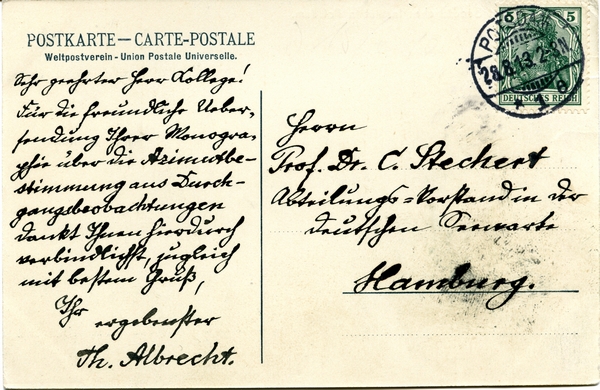 POSTKARTE — CARTE-POSTALE
Weltpostverein - Union Postale Universelle.
Sehr geehrter Herr College!
Für die freundliche Ueber-
sendung Ihrer Monogra-
phie über die Azimutbe-
stimmung aus Durch-
gangsbeobachtungen
dankt Ihnen hierdurch
verbindlichst, zugleich
mit bestem Gruß,
Ihr
ergebenster
Th. Albrecht.
POTSDAM
28.8.13. 2-3N.
5
DEUTSCHES REICH
Herrn
Prof. Dr. C. Stechert
Abteilungs-Vorstand in der
deutschen Seewarte
Hamburg.